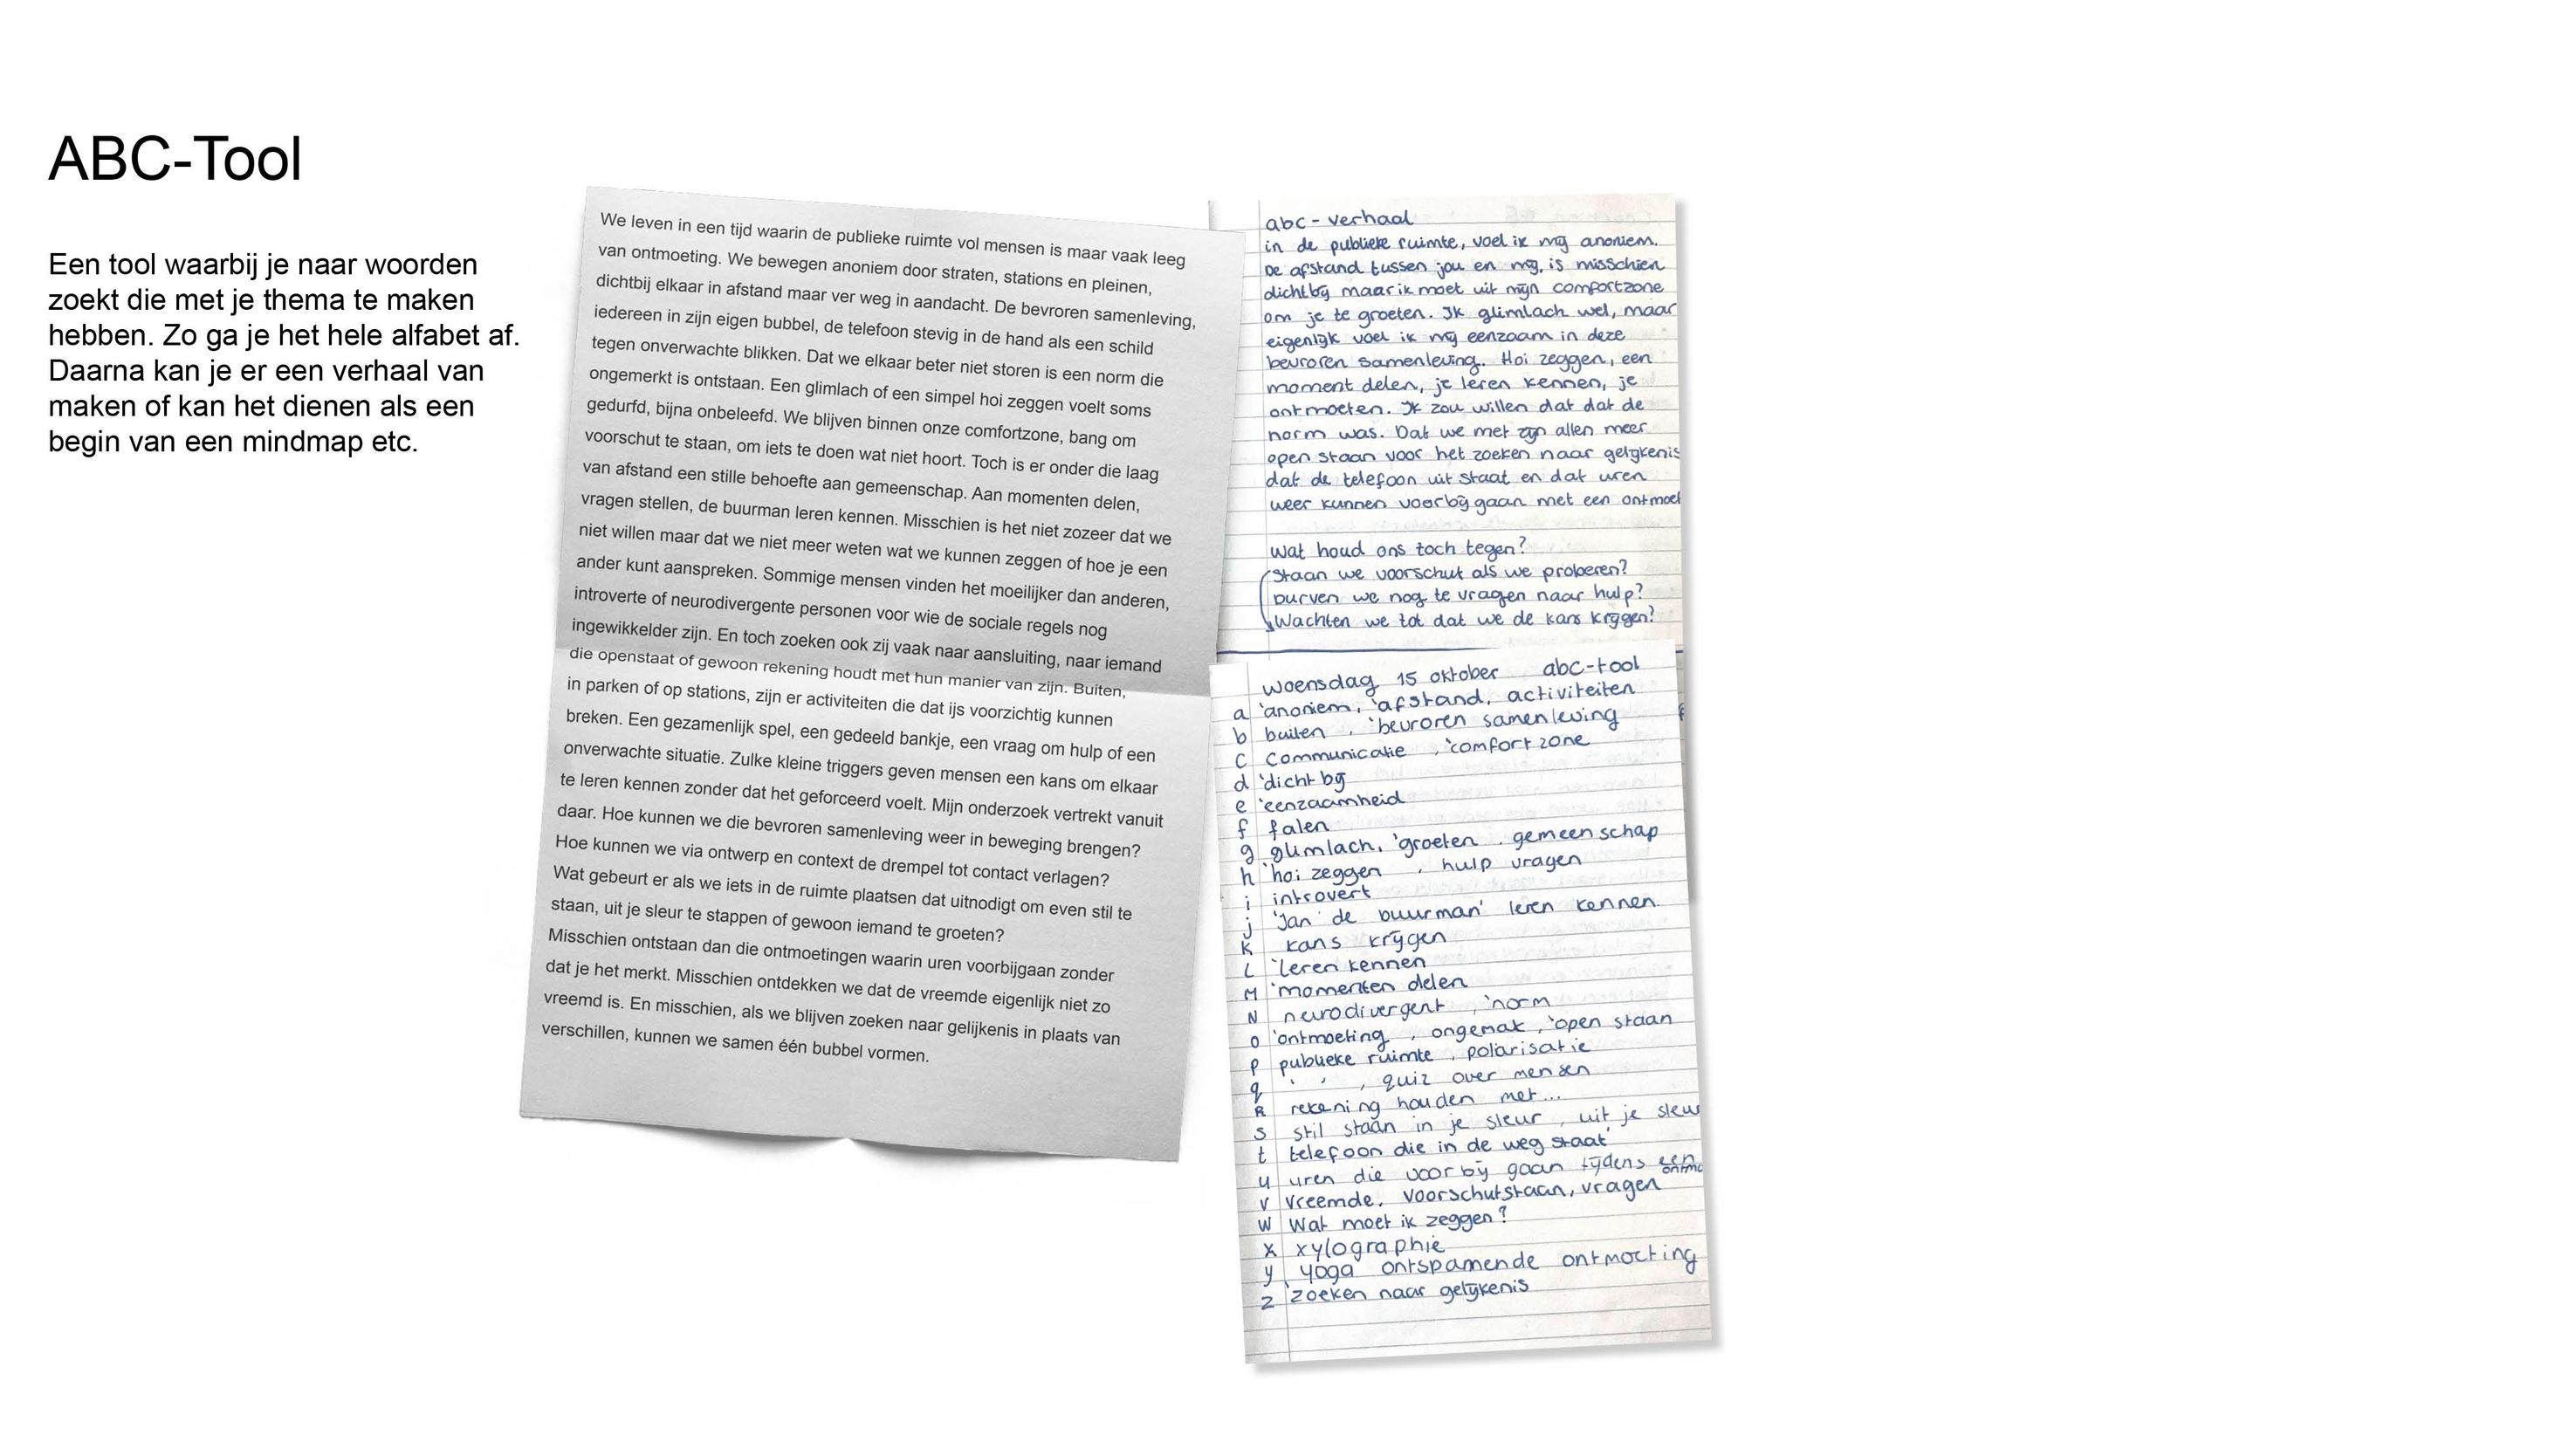 ABC-Tool
Een tool waarbij je naar woorden
zoekt die met je thema te maken
hebben. Zo ga je het hele alfabet af.
Daarna kan je er een verhaal van
maken of kan het dienen als een
begin van een mindmap etc.
We leven in een tijd waarin de publieke ruimte vol mensen is maar vaak leeg
van ontmoeting. We bewegen anoniem door straten, stations en pleinen,
dichtbij elkaar in afstand maar ver weg in aandacht. De bevroren samenleving,
iedereen in zijn eigen bubbel, de telefoon stevig in de hand als een schild
tegen onverwachte blikken. Dat we elkaar beter niet storen is een norm die
ongemerkt is ontstaan. Een glimlach of een simpel hoi zeggen voelt soms
gedurfd, bijna onbeleefd. We blijven binnen onze comfortzone, bang om
voorschut te staan, om iets te doen wat niet hoort. Toch is er onder die laag
van afstand een stille behoefte aan gemeenschap. Aan momenten delen,
vragen stellen, de buurman leren kennen. Misschien is het niet zozeer dat we
niet willen maar dat we niet meer weten wat we kunnen zeggen of hoe je een
ander kunt aanspreken. Sommige mensen vinden het moeilijker dan anderen,
introverte of neurodivergente personen voor wie de sociale regels nog
ingewikkelder zijn. En toch zoeken ook zij vaak naar aansluiting, naar iemand
die openstaat of gewoon rekening houdt met hun manier van zijn. Buiten,
in parken of op stations, zijn er activiteiten die dat ijs voorzichtig kunnen
breken. Een gezamenlijk spel, een gedeeld bankje, een vraag om hulp of een
onverwachte situatie. Zulke kleine triggers geven mensen een kans om elkaar
te leren kennen zonder dat het geforceerd voelt. Mijn onderzoek vertrekt vanuit
daar. Hoe kunnen we die bevroren samenleving weer in beweging brengen?
Hoe kunnen we via ontwerp en context de drempel tot contact verlagen?
Wat gebeurt er als we iets in de ruimte plaatsen dat uitnodigt om even stil te
staan, uit je sleur te stappen of gewoon iemand te groeten?
Misschien ontstaan dan die ontmoetingen waarin uren voorbijgaan zonder
dat je het merkt. Misschien ontdekken we dat de vreemde eigenlijk niet zo
vreemd is. En misschien, als we blijven zoeken naar gelijkenis in plaats van
verschillen, kunnen we samen één bubbel vormen.
abc-verhaal
in de publieke ruimte, voel ik mij anoniem.
De afstand tussen jou en mij, is misschien
dichtbij maar ik moet uit mijn comfortzone
om je te groeten. Ik glimlach wel, maar
eigenlijk voel ik mij eenzaam in deze
bevroren samenleving. Hoi zeggen, een
moment delen, je leren kennen, je
ontmoeten. Ik zou willen dat dat de
norm was. Dat we met zijn allen meer
open staan voor het zoeken naar gelijkenis
dat de telefoon uit staat en dat uren
weer kunnen voorbij gaan met een ontmoet
Wat houd ons toch tegen?
Staan we voorschut als we proberen?
Durven we nog te vragen naar hulp?
Wachten we tot dat we de kans krijgen?
woensdag 15 oktober abc-tool
a 'anoniem, 'afstand, activiteiten
b buiten, 'bevroren samenleving
c communicatie, 'comfortzone
d 'dichtbij
e 'eenzaamheid
f falen
g 'glimlach, 'groeten, gemeenschap
h 'hoi zeggen, hulp vragen
i introvert
j 'Jan de buurman' leren kennen.
k kans krijgen
L 'leren kennen
M 'momenten delen
N neurodivergent, 'norm
o 'ontmoeting, ongemak, 'open staan
p publieke ruimte, polarisatie
q ' ' , quiz over mensen
R rekening houden met...
s stil staan in je sleur, uit je sleur
t telefoon die in de weg staat'
u uren die voorbij gaan tijdens een ontmo
v vreemde, voorschutstaan, vragen
w Wat moet ik zeggen?
x xylographie
y yoga ontspannende ontmoeting
z 'zoeken naar gelijkenis